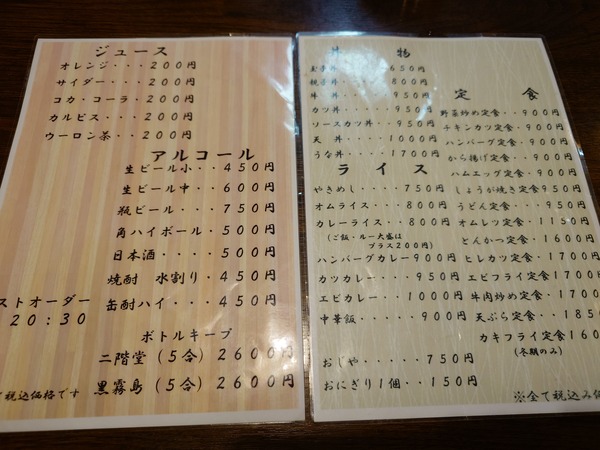 ジュース
オレンジ・・・200円
サイダー・・・200円
コカ・コーラ・200円
カルピス・・・200円
ウーロン茶・・200円
アルコール
生ビール小・・450円
生ビール中・・600円
瓶ビール・・・750円
角ハイボール・500円
日本酒・・・・500円
焼酎 水割り・450円
缶酎ハイ・・・450円
ストオーダー
20:30
ボトルキープ
二階堂(5合)2600円
黒霧島(5合)2600円
税込価格です
丼 物
650円
親子丼・・・・800円
牛 丼・・・・950円
カツ丼・・・・950円
ソースカツ丼・・950円
天 丼・・・・1000円
うな丼・・・・1700円
ライス
やきめし・・・・750円
オムライス・・・800円
カレーライス・・800円
(ご飯・ルー大盛は
プラス200円)
ハンバーグカレー900円
カツカレー・・・950円
エビカレー・・・1000円
中華飯・・・・・900円
おじや・・・・・750円
おにぎり1個・・150円
定 食
野菜炒め定食・・900円
チキンカツ定食・900円
ハンバーグ定食・900円
から揚げ定食・・900円
ハムエッグ定食・900円
しょうが焼き定食950円
うどん定食・・・950円
オムレツ定食・1150円
とんかつ定食・1600円
ヒレカツ定食・1700円
エビフライ定食1700
牛肉炒め定食・1700
天ぷら定食・・1850
カキフライ定食160
(冬期のみ)
※全て税込み価